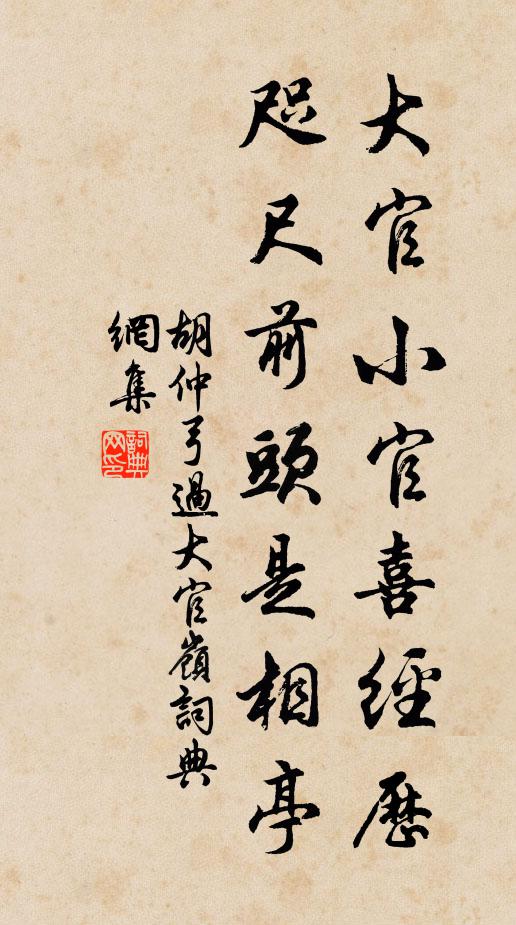 大官小官喜經歷
咫尺前頭是相亭
胡仲弓過大官嶺詞典
網集
詞典
网印